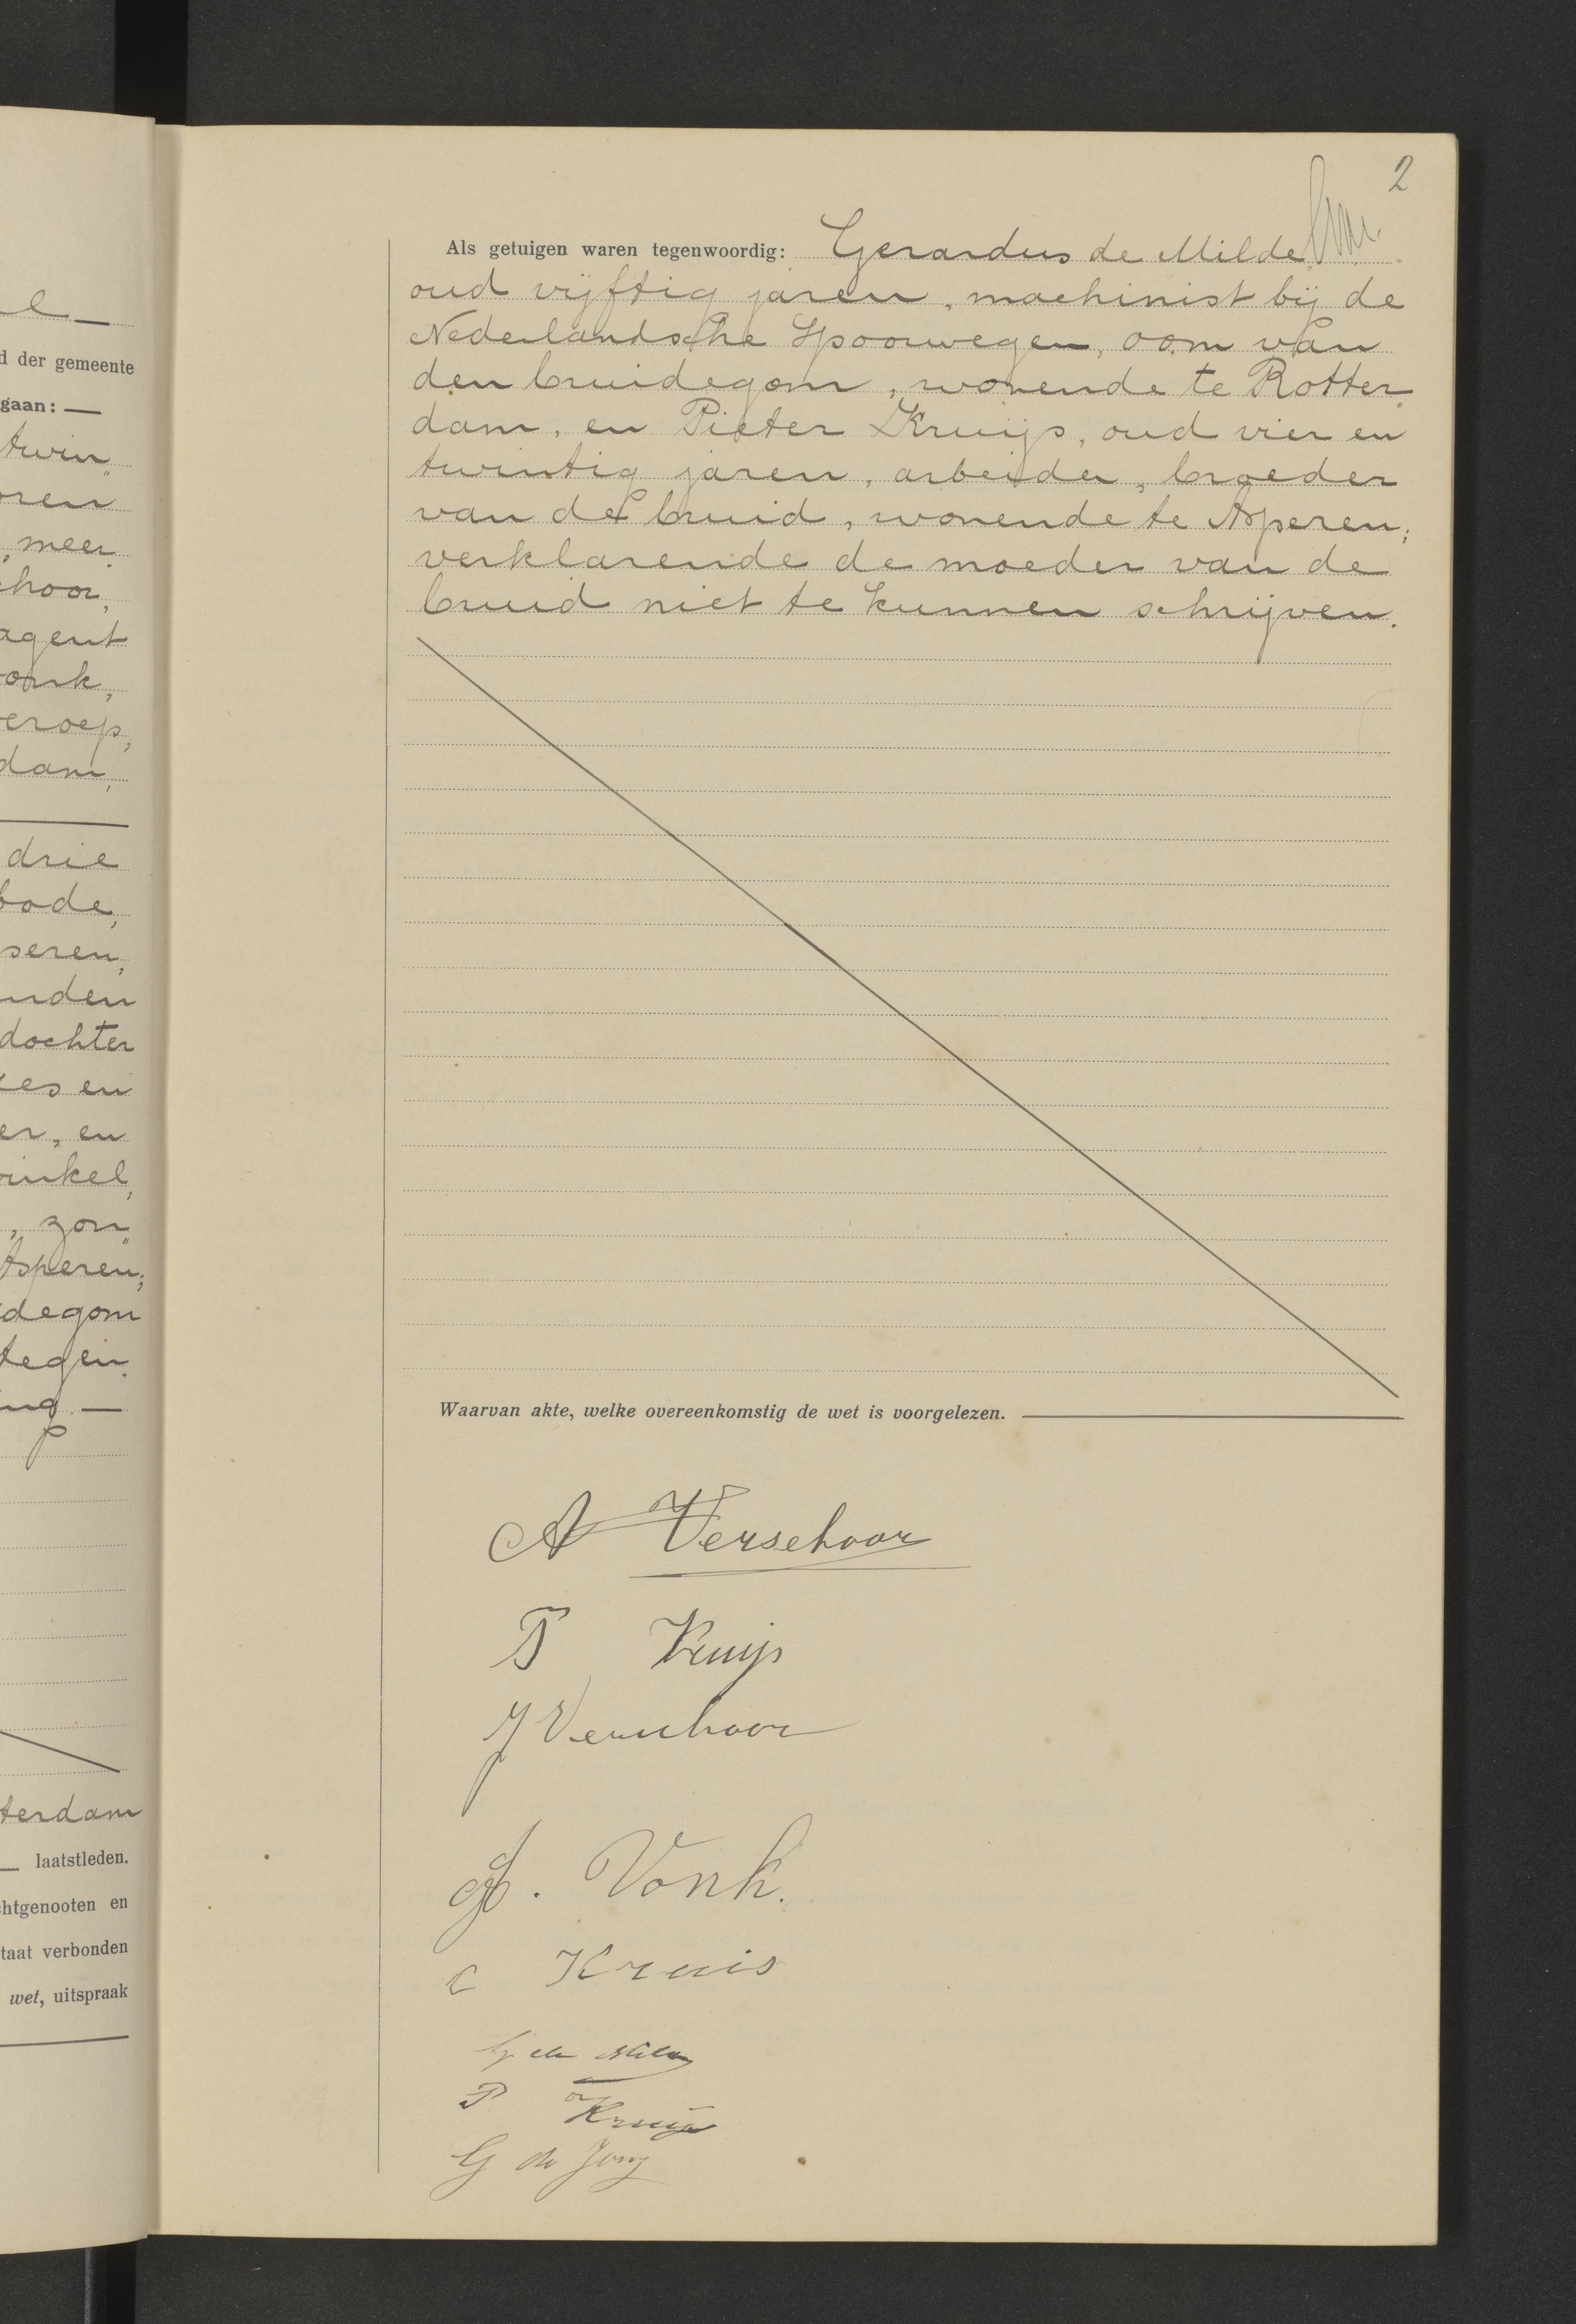 l
d der gemeente
gaan:
twin„
oren
, meer„
choor,
agent
onk,
eroep,
dam,
drie
bode,
seren,
nden
dochter
zes en
er, en
inkel,
, zon„
Asperen;
degom
tegen„
ing
terdam
laatstleden.
chtgenooten en
taat verbonden
wet, uitspraak
2
Als getuigen waren tegenwoordig: Gerardus de Milde
oud vijftig jaren, machinist bij de
Nederlandsche Spoorwegen, oom van
den bruidegom, wonende te Rotter„
dam, en Pieter Kruijs, oud vier en
twintig jaren, arbeider, broeder
van de bruid, wonende te Asperen;
verklarende de moeder van de
bruid niet te kunnen schrijven.
Waarvan akte, welke overeenkomstig de wet is voorgelezen.
A Verschoor
Kruijs
J Verschoor
. Vonk.
C Kruis
G de Milde
P Kruijs
G de Jong